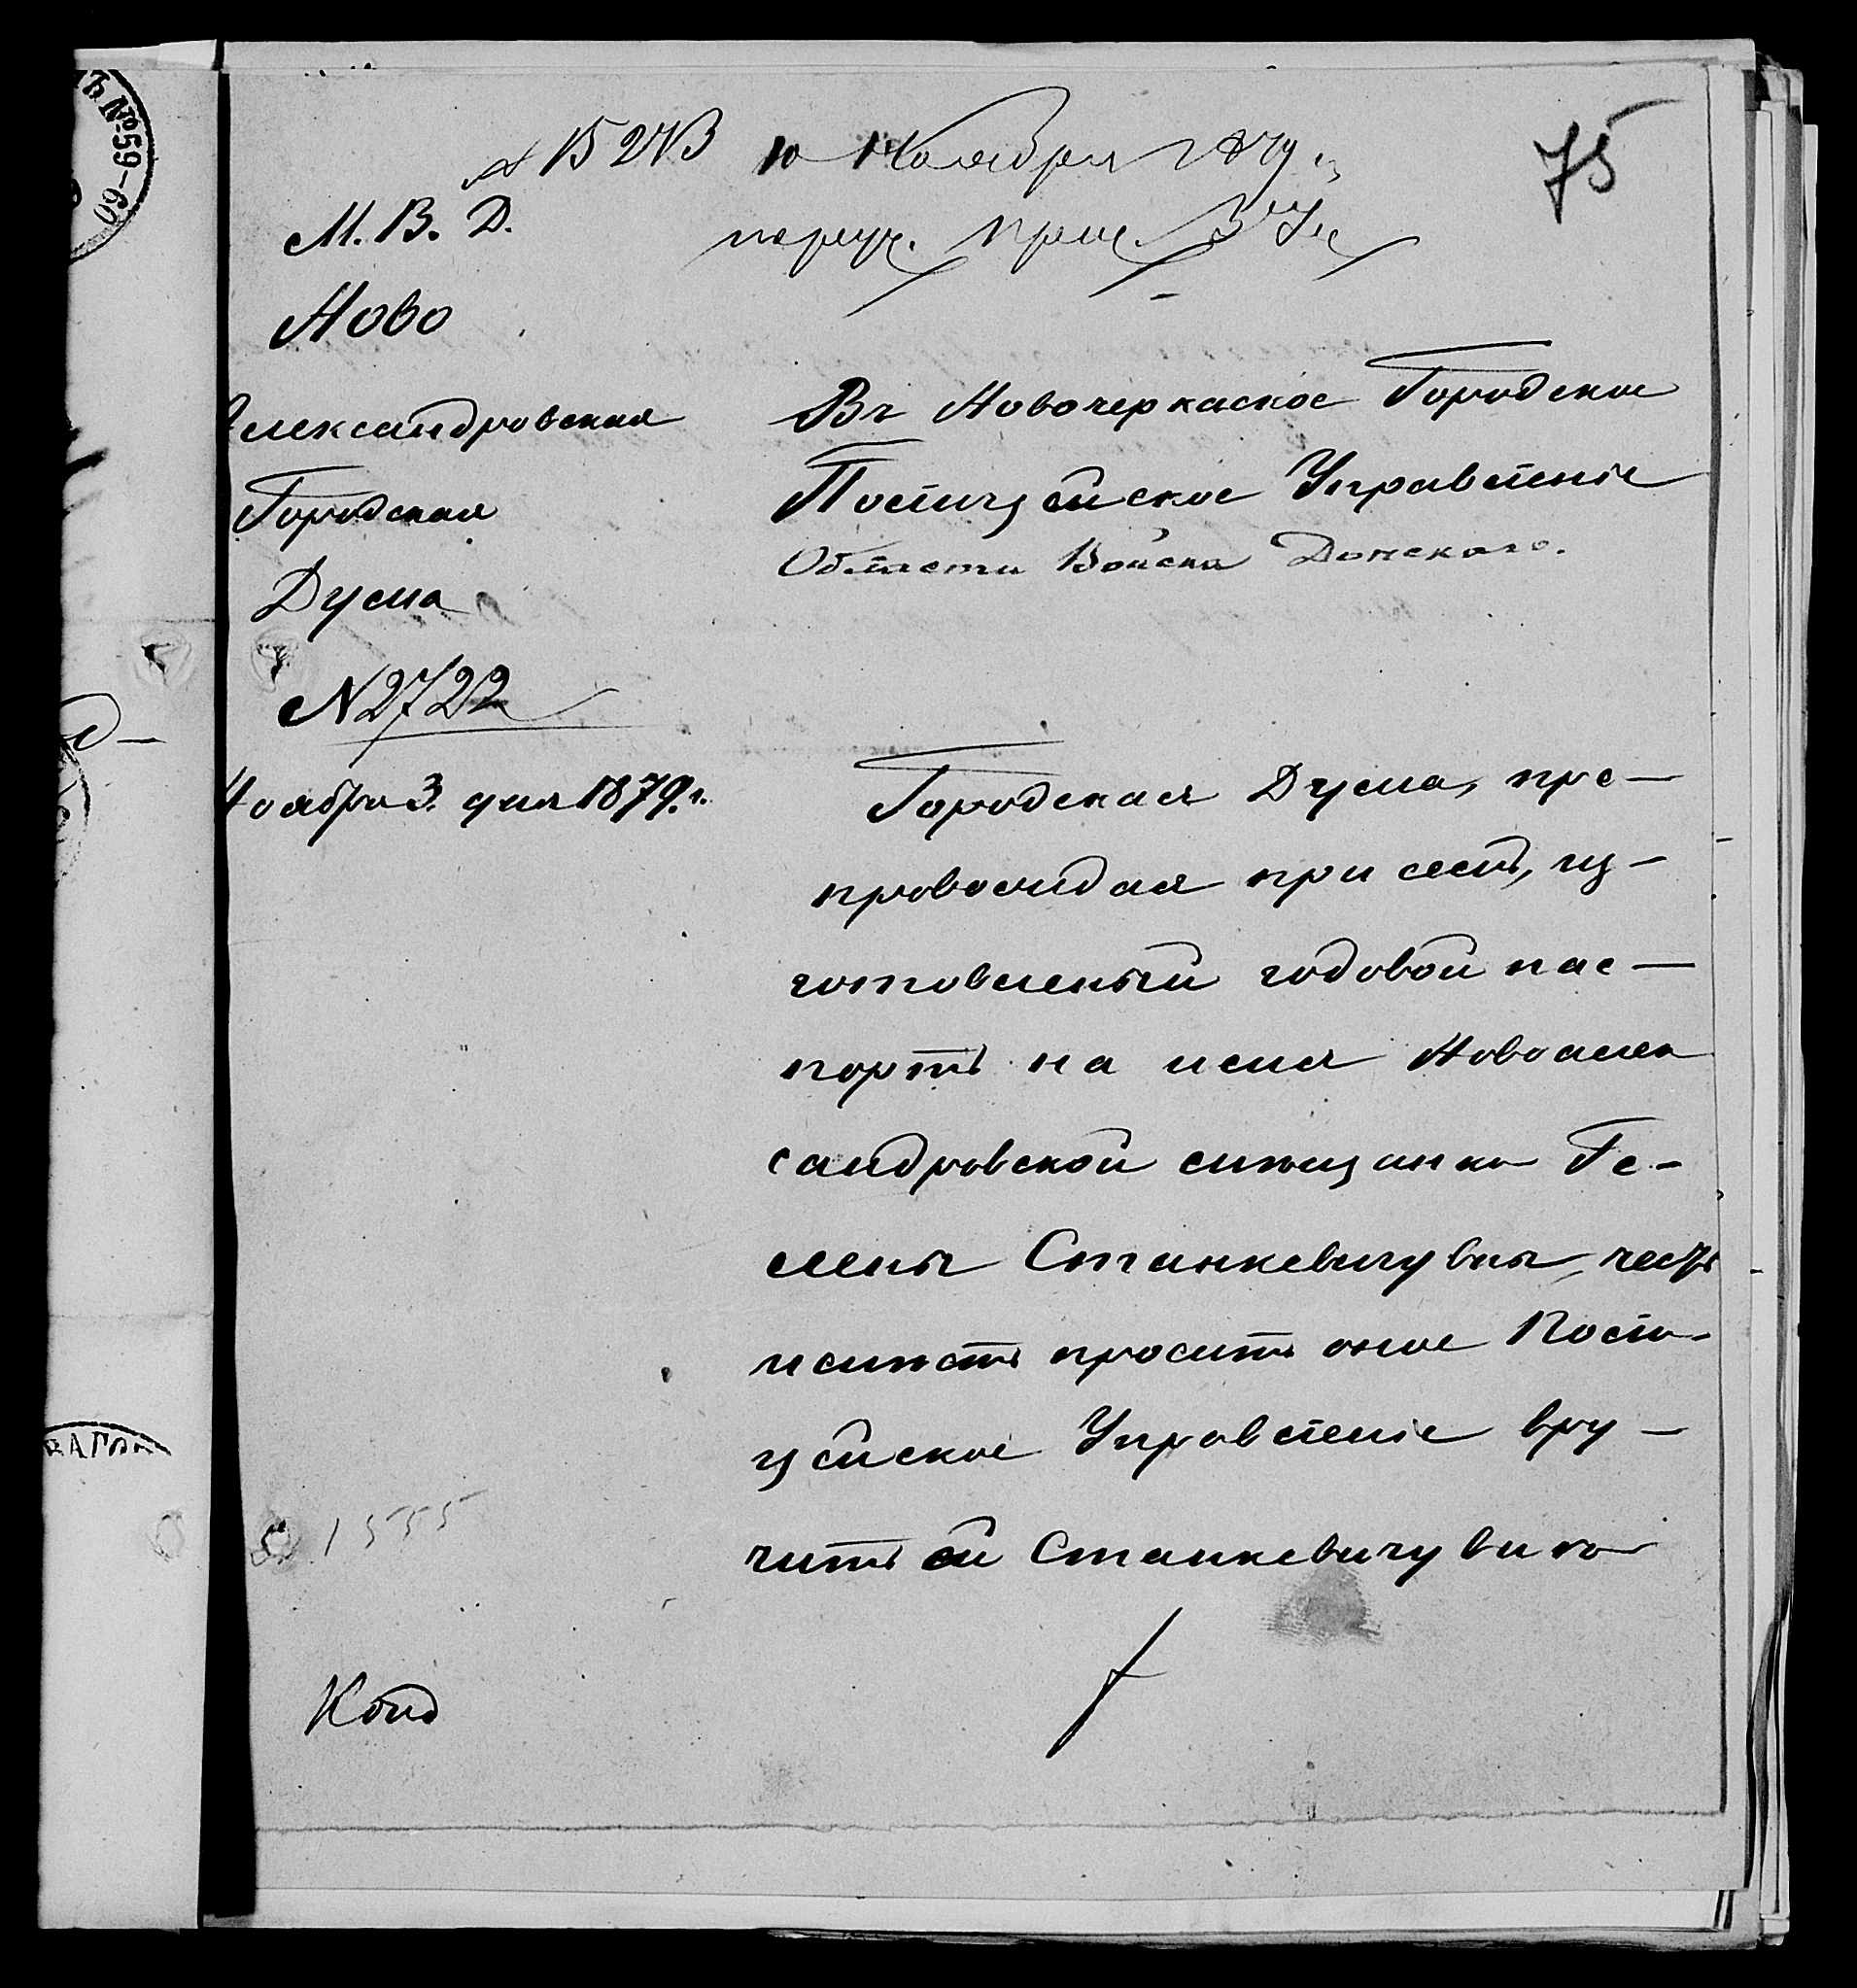 № 15243 10 Ноября 1879 г.
75
поруч. прис. 3 Уч.
М. В. Д.
Ново
Александровская
Городская
Дума
N 2722
Ноября 3 дня 1879 г.
Въ Новочеркаское Городское
Полицейское Управленіе
Области Войска Донскаго.
Городская Дума, пре-
провождая при семъ, из-
готовленый годовой пас-
портъ на имя Новоалек
сандровской мѣщанки Ге-
лены Станкевичувны, честь
имѣетъ просить оное Поли-
цейское Управленіе вру-
чить ей Станкевичувнѣ
1555
ѣ №59-60